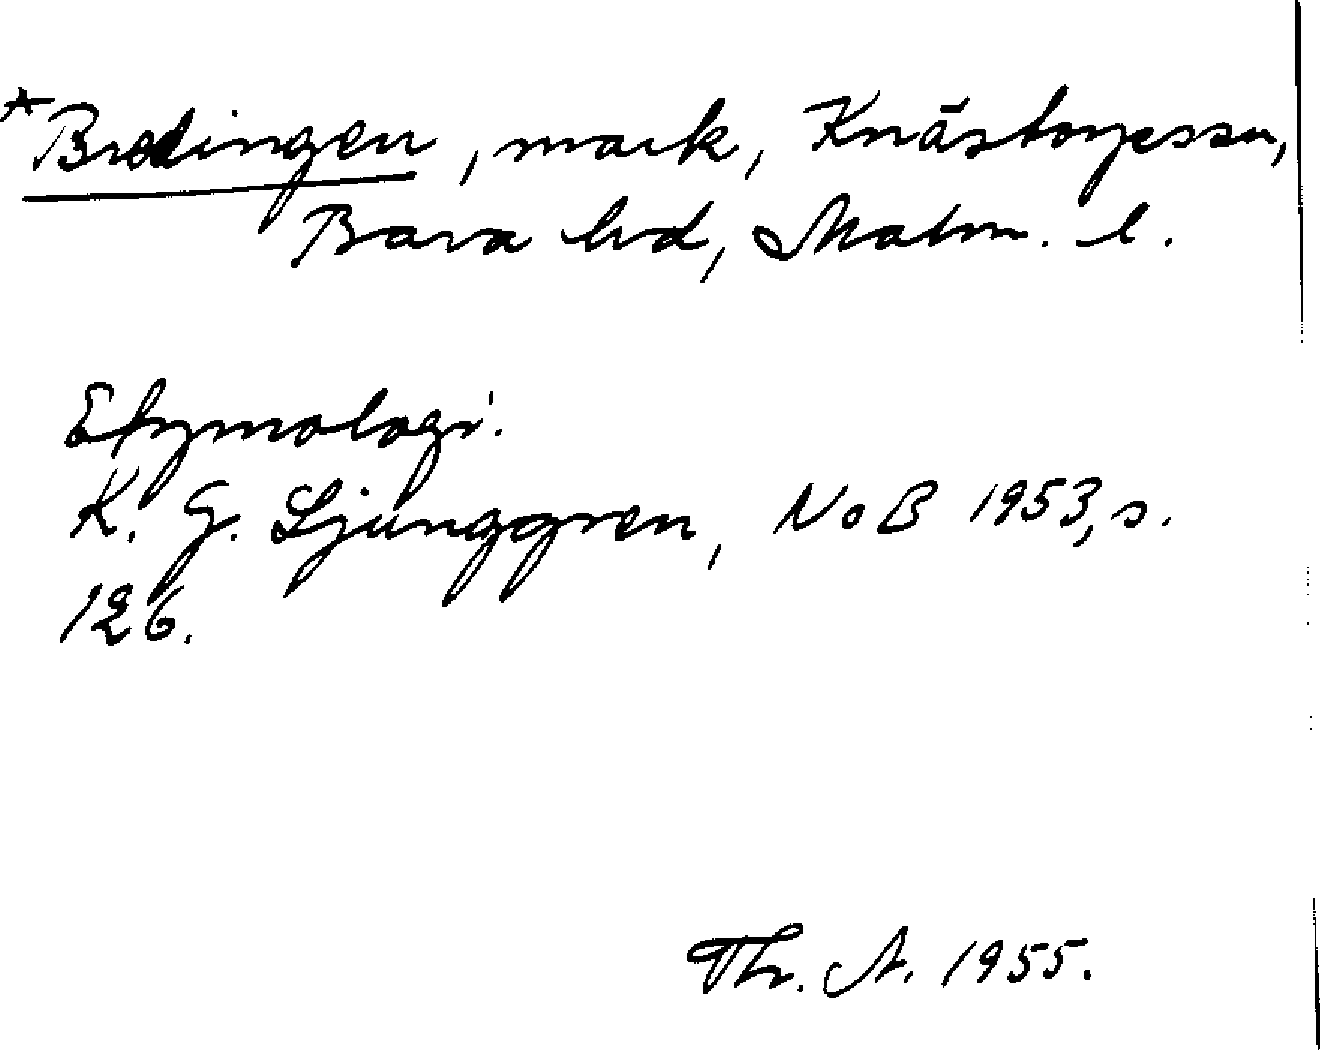 *Bredingen, mark, Knästorpssn,
Bara hd, Malm. l.
Etymologi.
K. G. Ljunggren, NoB 1953, s.
126.
Th. A. 1955.